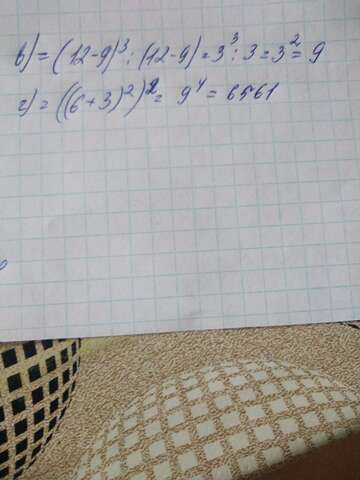 в) = (12-9)³ : (12-9) = 3³ : 3 = 3² = 9
г) = ((6+3)²)² = 9⁴ = 6561